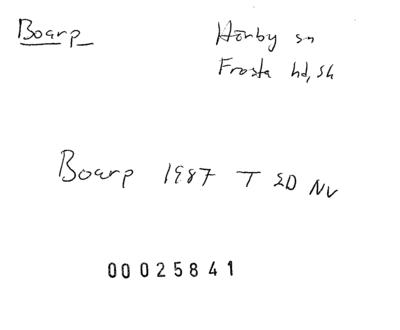 Boarp Hörby sn
Frosta hd, Sk
Boarp 1987 T 2D NV
00025841